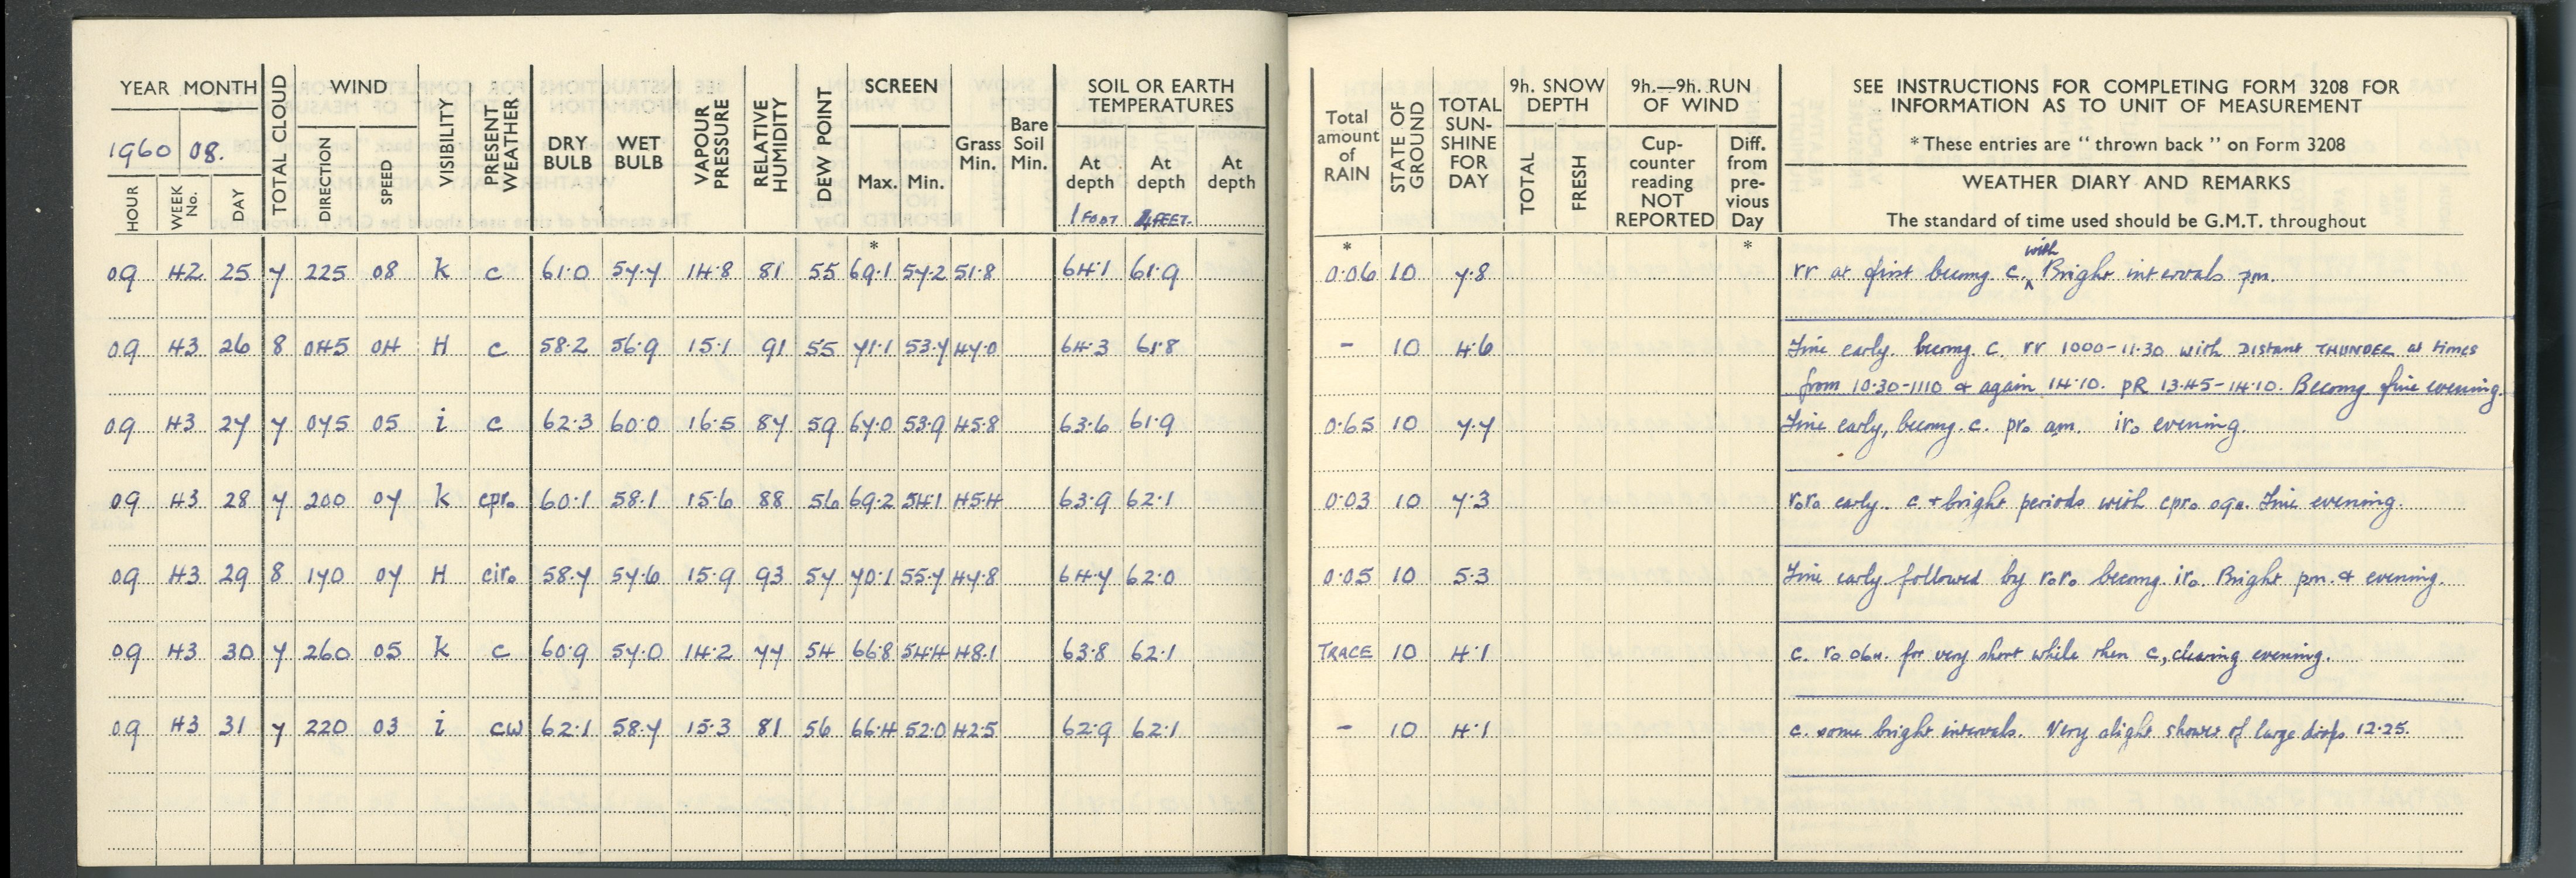 YEAR MONTH
1960 08.
HOUR
WEEK No.
DAY
TOTAL CLOUD
WIND
DIRECTION
SPEED
VISIBILITY
PRESENT WEATHER
DRY BULB
WET BULB
VAPOUR PRESSURE
RELATIVE HUMIDITY
DEW POINT
SCREEN
Max. Min.
Grass Min.
Bare Soil Min.
SOIL OR EARTH
TEMPERATURES
At depth 1 FOOT
At depth 4 FEET.
At depth
09 42 25 7 225 08 k c 61.0 57.7 14.8 81 55 69.1 57.2 51.8 64.1 61.9
09 43 26 8 045 04 H c 58.2 56.9 15.1 91 55 71.1 53.7 47.0 64.3 61.8
09 43 27 7 075 05 i c 62.3 60.0 16.5 87 59 67.0 53.9 45.8 63.6 61.9
09 43 28 7 200 07 k cpr₀ 60.1 58.1 15.6 88 56 69.2 54.1 45.4 63.9 62.1
09 43 29 8 170 07 H cir₀ 58.7 57.6 15.9 93 57 70.1 55.7 47.8 64.7 62.0
09 43 30 7 260 05 k c 60.9 57.0 14.2 77 54 66.8 54.4 48.1 63.8 62.1
09 43 31 7 220 03 i cw 62.1 58.7 15.3 81 56 66.4 52.0 42.5 62.9 62.1
Total amount of RAIN
STATE OF GROUND
TOTAL SUN-SHINE FOR DAY
9h. SNOW DEPTH
TOTAL
FRESH
9h.—9h. RUN OF WIND
Cup-counter reading NOT REPORTED
Diff. from pre-vious Day
SEE INSTRUCTIONS FOR COMPLETING FORM 3208 FOR
INFORMATION AS TO UNIT OF MEASUREMENT
* These entries are "thrown back" on Form 3208
WEATHER DIARY AND REMARKS
The standard of time used should be G.M.T. throughout
* * *
0.06 10 7.8 rr at first becomg c. with Bright intervals pm.
- 10 4.6 Fine early. becomg. c. rr 1000-11.30 with DIStant THUNDER at times
from 10.30-1110 & again 14.10. pR 13.45-14.10. Becomg fine evening.
0.65 10 7.7 Fine early, becomg. c. pr₀ am. ir₀ evening.
0.03 10 7.3 r₀r₀ early. c + bright periods with cpr₀ 09h. Fine evening.
0.05 10 5.3 Fine early followed by r₀r₀ becomg. ir₀. Bright pm. & evening.
TRACE 10 4.1 c. r₀ 06h. for very short while then c, clearing evening.
- 10 4.1 c. some bright intervals. Very slight shower of large drops 12.25.